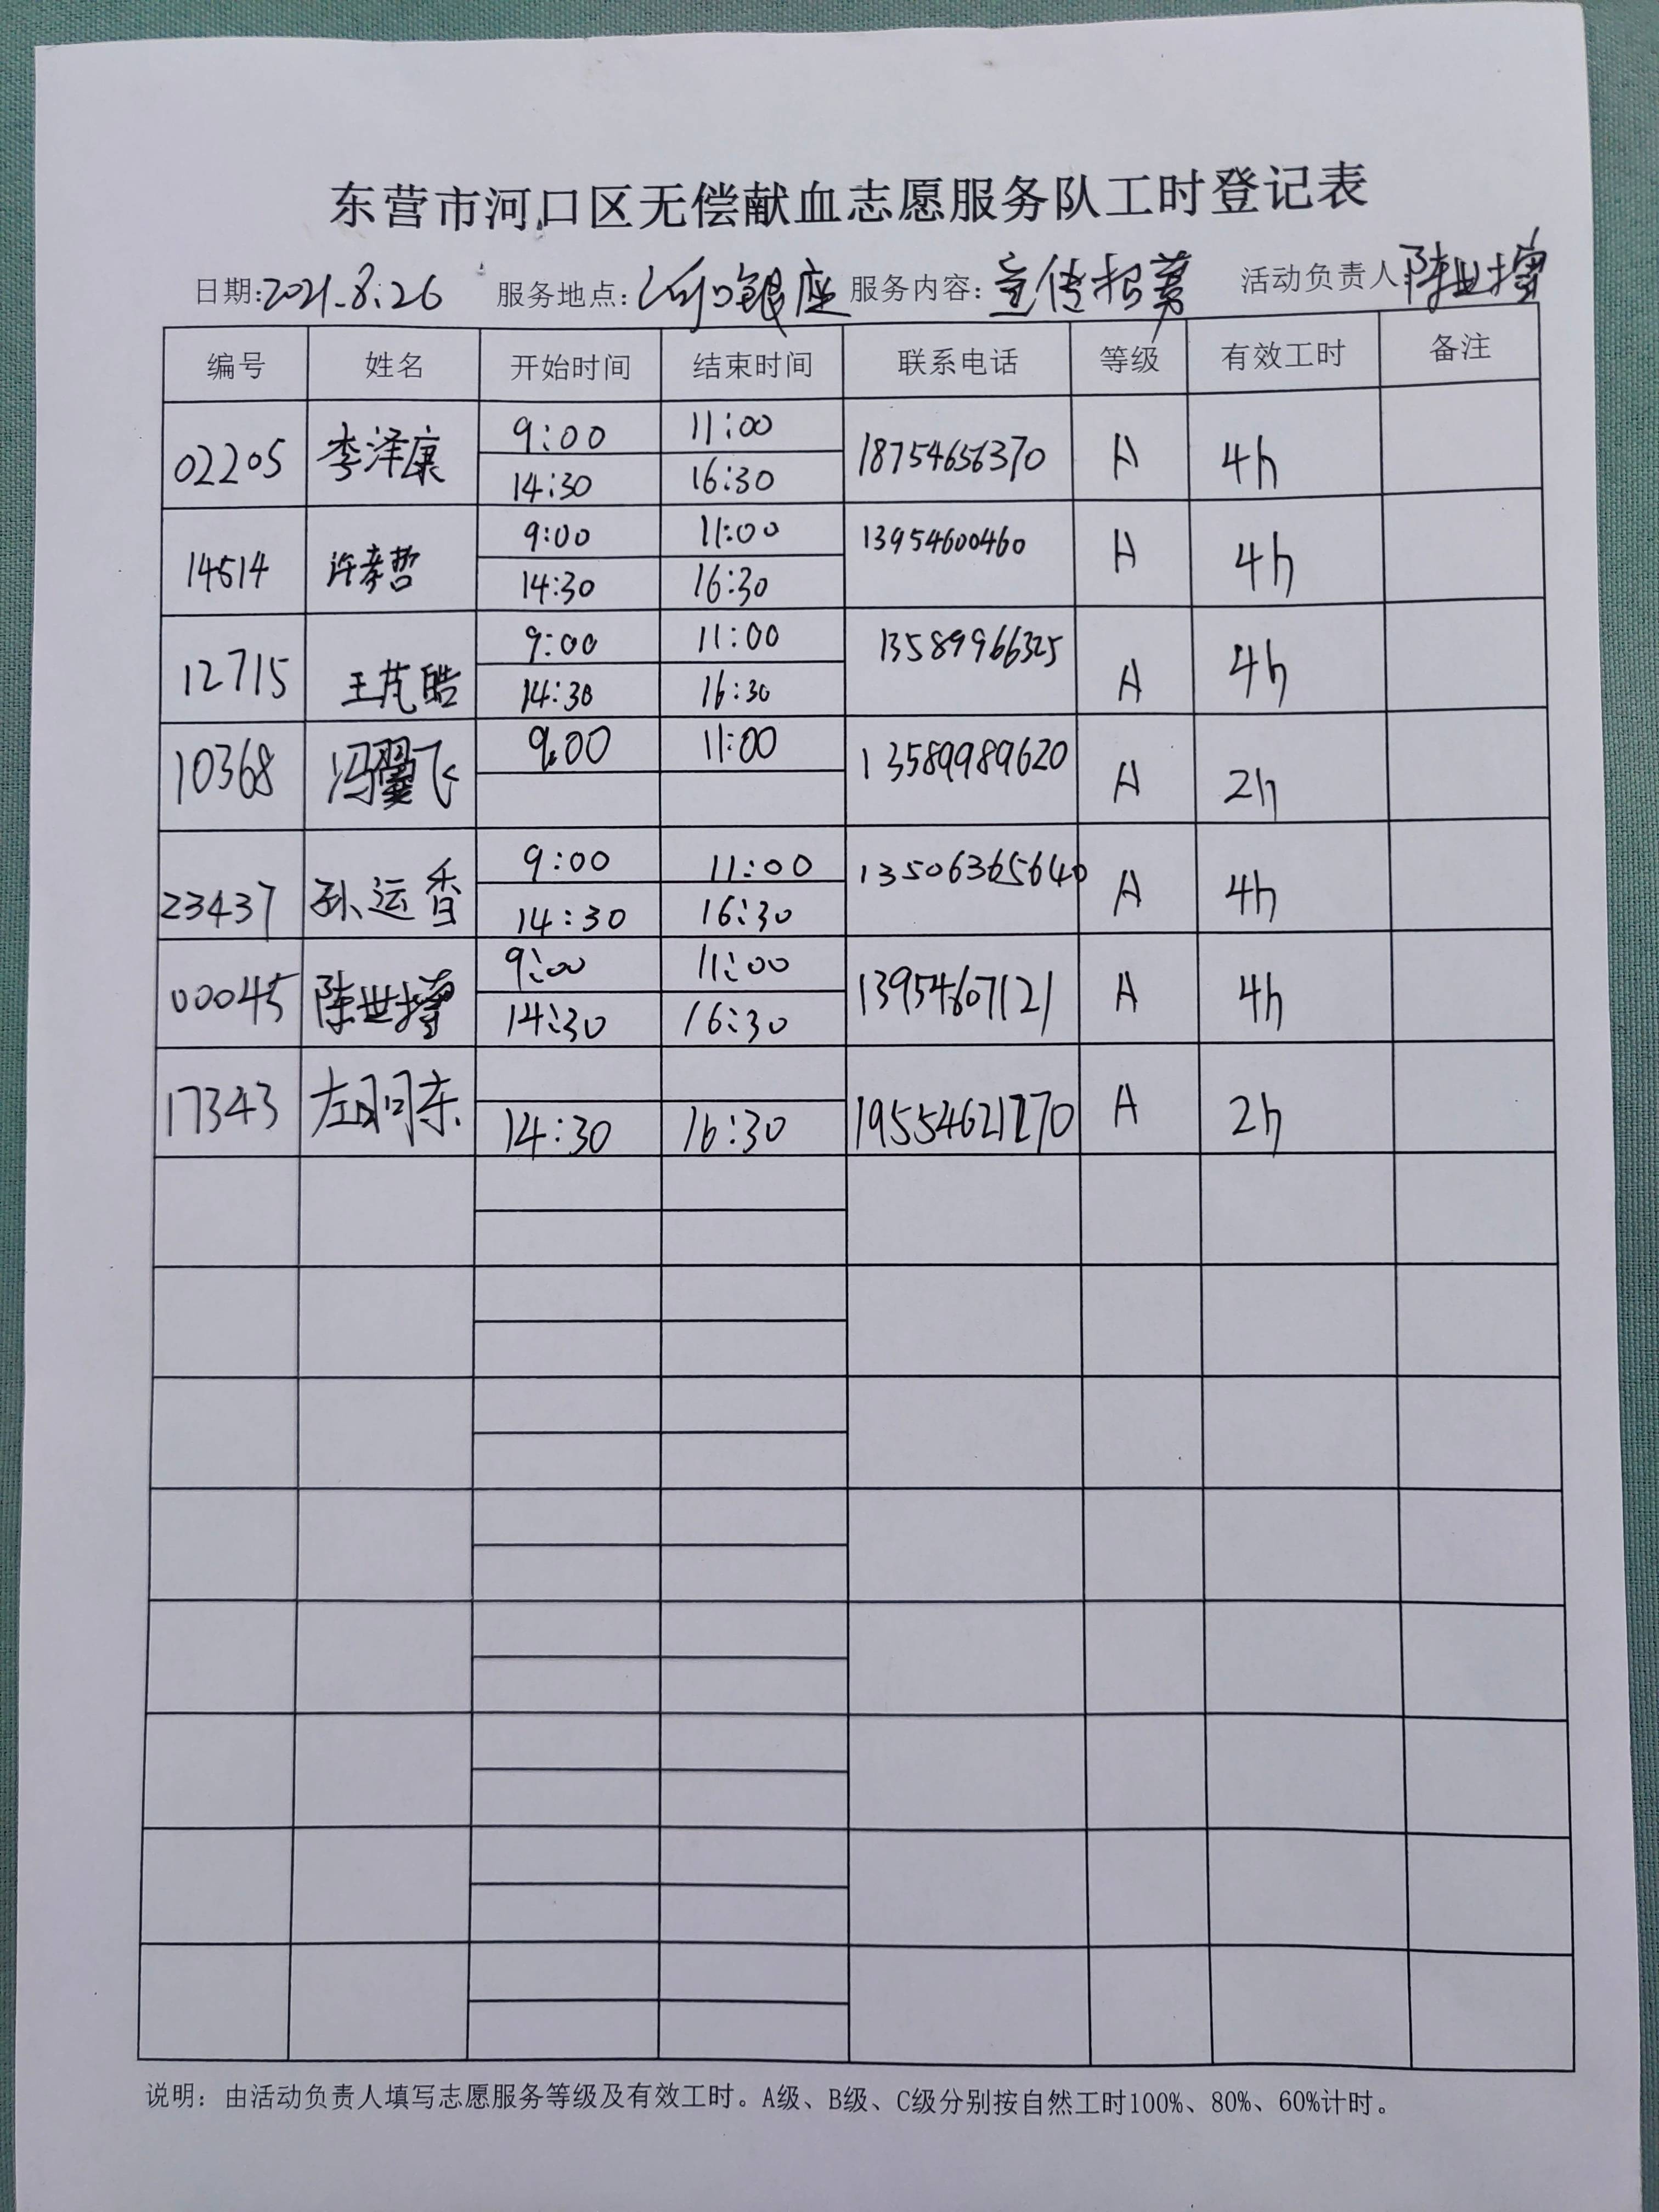 东营市河口区无偿献血志愿服务队工时登记表
日期:2021.8.26 服务地点:河口银座 服务内容:宣传招募 活动负责人:陈世增
编号 姓名 开始时间 结束时间 联系电话 等级 有效工时 备注
02205 李泽康 9:00 11:00 18754656370 A 4h
14:30 16:30
14514 许孝哲 9:00 11:00 13954600460 A 4h
14:30 16:30
12715 王芃皓 9:00 11:00 13589966325 A 4h
14:30 16:30
10368 冯翼飞 9:00 11:00 13589989620 A 2h
23437 孙运香 9:00 11:00 13506365640 A 4h
14:30 16:30
00045 陈世增 9:00 11:00 13954607121 A 4h
14:30 16:30
17343 左 东 14:30 16:30 A 2h
说明：由活动负责人填写志愿服务等级及有效工时。A级、B级、C级分别按自然工时100%、80%、60%计时。